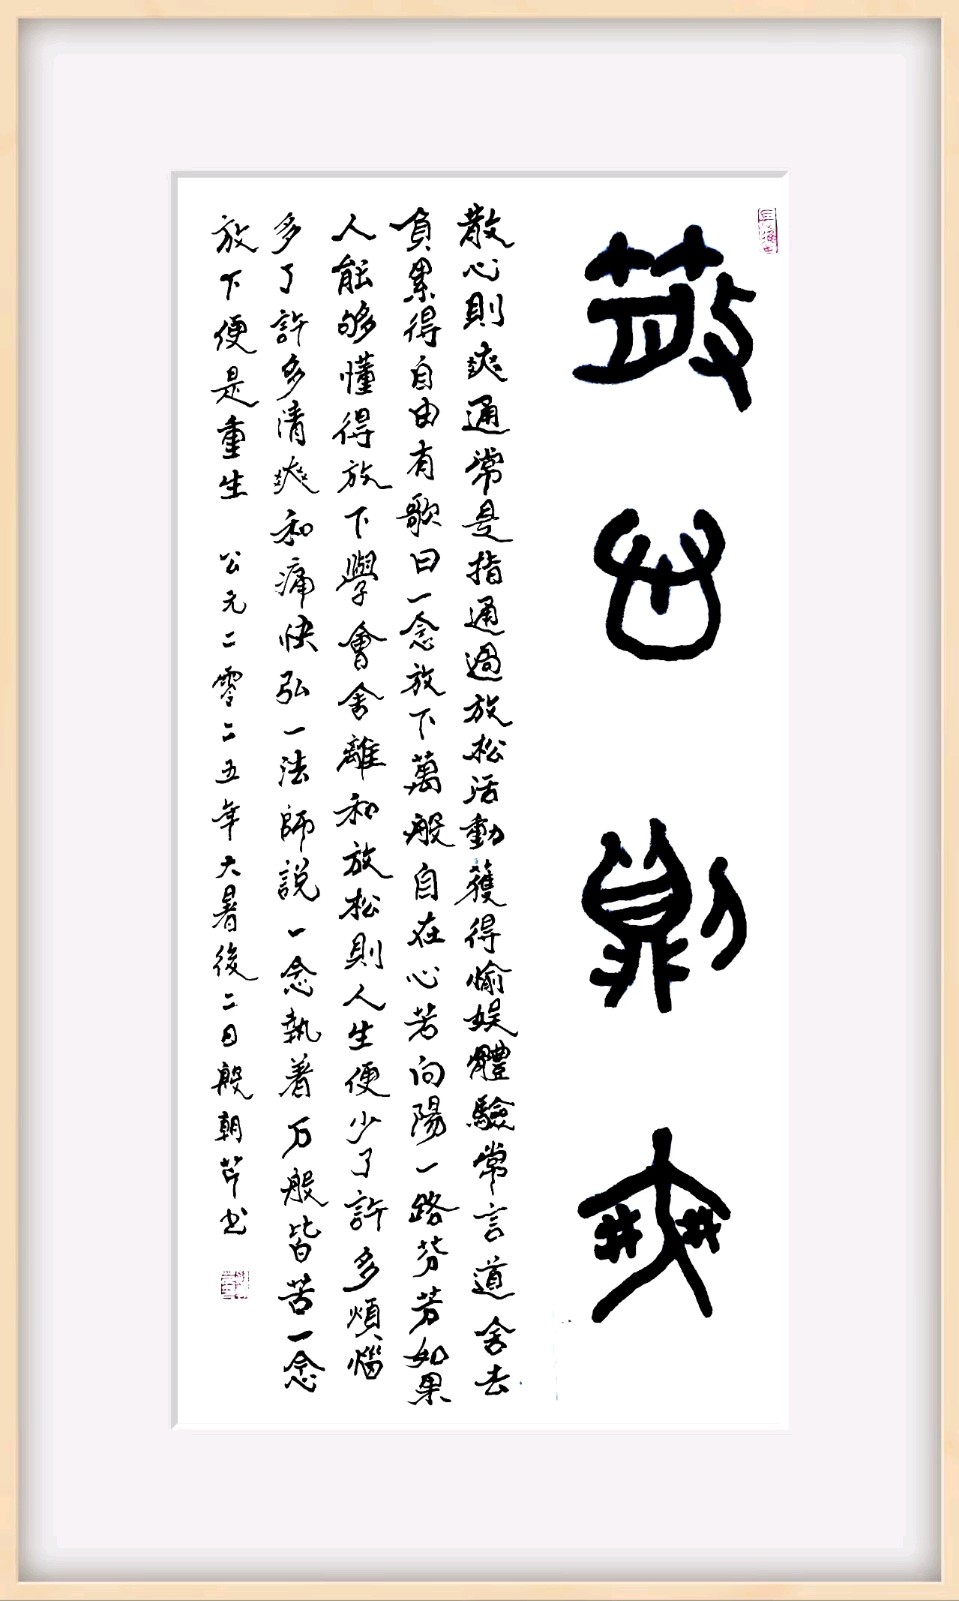 散心則爽
散心則爽通常是指通過放松活動獲得愉娱體驗常言道舍去
負累得自由有歌曰一念放下萬般自在心若向陽一路芬芳如果
人能够懂得放下學會舍離和放松則人生便少了許多煩惱
多了許多清爽和痛快弘一法師説一念執着万般皆苦一念
放下便是重生 公元二零二五年大暑後二日殷朝芹书